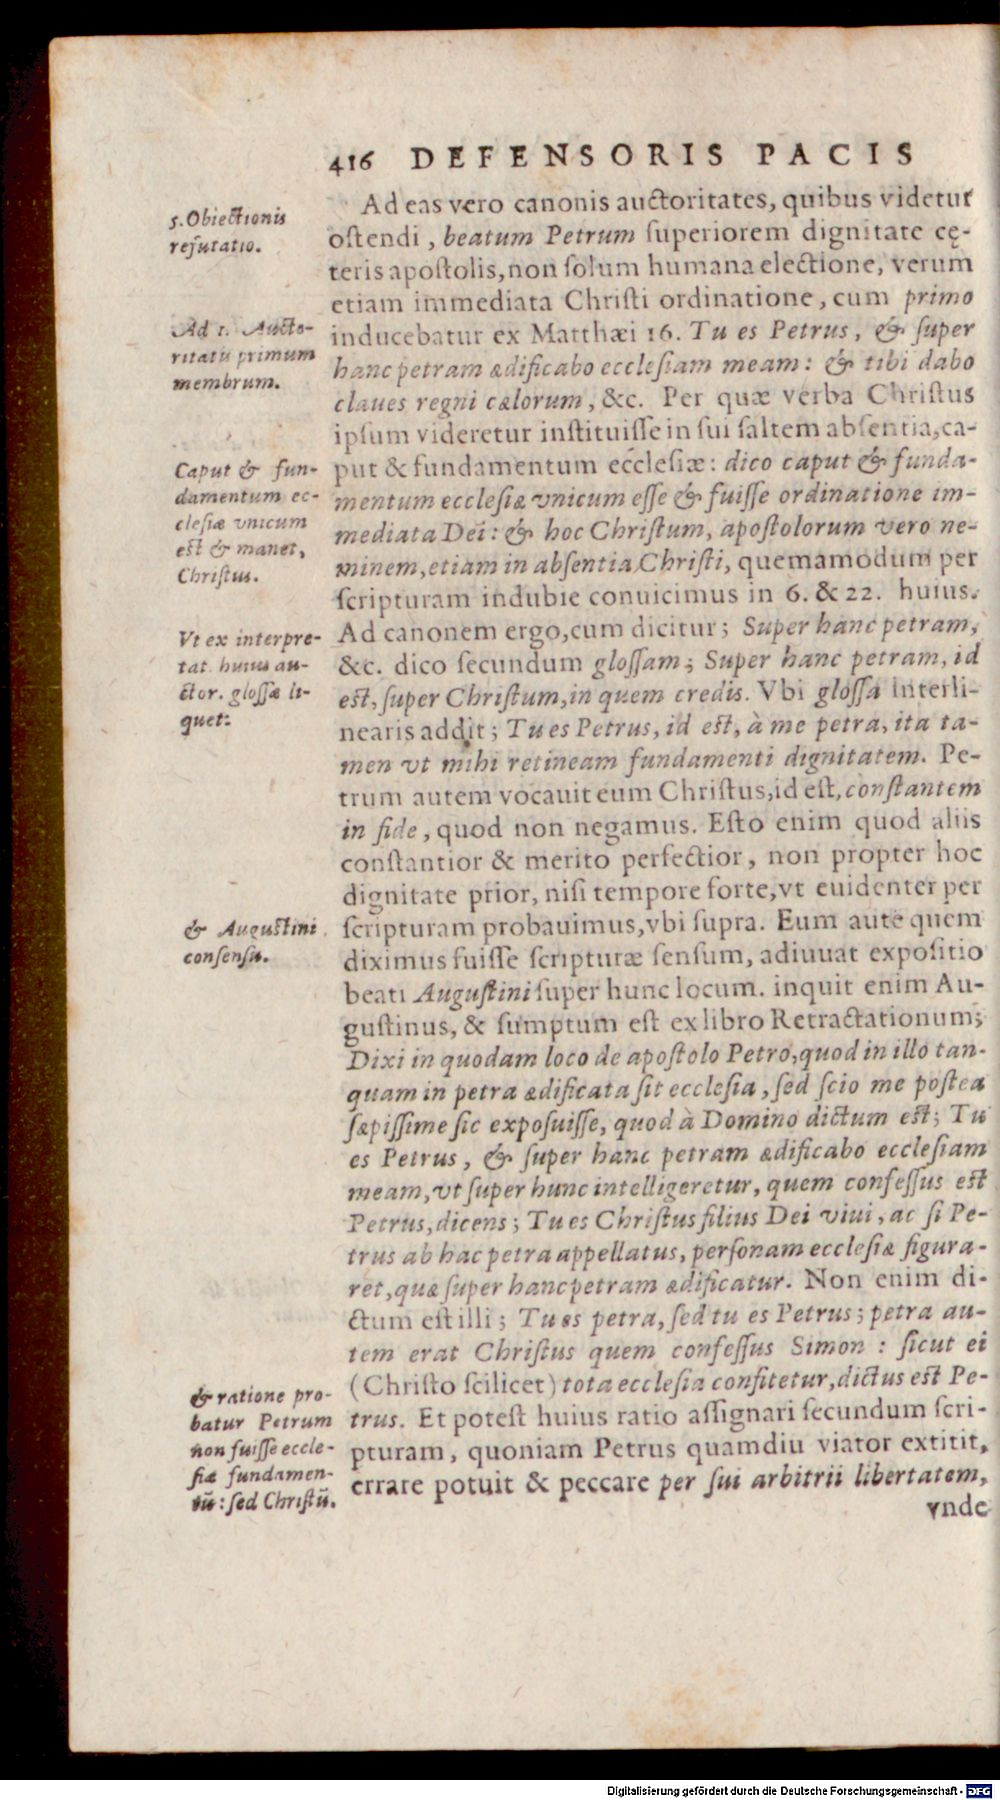 416 DEFENSORIS PACIS
5. Obiectionis
refutatio.
Ad 1. Aucto-
ritatis primum
membrum.
Caput & fun-
damentum ec-
clesiæ vnicum
est & manet,
Christus.
Vt ex interpre-
tat. huius au-
ctor. glossæ li-
quet:
& Augustini
consensu.
& ratione pro-
batur Petrum
non fuisse eccle-
siæ fundamen-
tū: sed Christū.
Ad eas vero canonis auctoritates, quibus videtur
ostendi, beatum Petrum superiorem dignitate cę-
teris apostolis, non solum humana electione, verum
etiam immediata Christi ordinatione, cum primo
inducebatur ex Matthæi 16. Tu es Petrus, & super
hanc petram ædificabo ecclesiam meam: & tibi dabo
claues regni cælorum, &c. Per quæ verba Christus
ipsum videretur instituisse in sui saltem absentia, ca-
put & fundamentum ecclesiæ: dico caput & funda-
mentum ecclesiæ vnicum esse & fuisse ordinatione im-
mediata Dei: & hoc Christum, apostolorum vero ne-
minem, etiam in absentia Christi, quemamodum per
scripturam indubie conuicimus in 6. & 22. huius.
Ad canonem ergo, cum dicitur; Super hanc petram,
&c. dico secundum glossam; Super hanc petram, id
est, super Christum, in quem credis. Vbi glossa interli-
nearis addit; Tu es Petrus, id est, à me petra, ita ta-
men vt mihi retineam fundamenti dignitatem. Pe-
trum autem vocauit eum Christus, id est, constantem
in fide, quod non negamus. Esto enim quod aliis
constantior & merito perfectior, non propter hoc
dignitate prior, nisi tempore forte, vt euidenter per
scripturam probauimus, vbi supra. Eum autē quem
diximus fuisse scripturæ sensum, adiuuat expositio
beati Augustini super hunc locum. inquit enim Au-
gustinus, & sumptum est ex libro Retractationum;
Dixi in quodam loco de apostolo Petro, quod in illo tan-
quam in petra ædificata sit ecclesia, sed scio me postea
sæpissime sic exposuisse, quod à Domino dictum est; Tu
es Petrus, & super hanc petram ædificabo ecclesiam
meam, vt super hunc intelligeretur, quem confessus est
Petrus, dicens; Tu es Christus filius Dei viui, ac si Pe-
trus ab hac petra appellatus, personam ecclesiæ figura-
ret, quæ super hanc petram ædificatur. Non enim di-
ctum est illi; Tu es petra, sed tu es Petrus; petra au-
tem erat Christus quem confessus Simon: sicut ei
(Christo scilicet) tota ecclesia confitetur, dictus est Pe-
trus. Et potest huius ratio assignari secundum scri-
pturam, quoniam Petrus quamdiu viator extitit,
errare potuit & peccare per sui arbitrii libertatem,
vnde
Digitalisierung gefördert durch die Deutsche Forschungsgemeinschaft - DFG